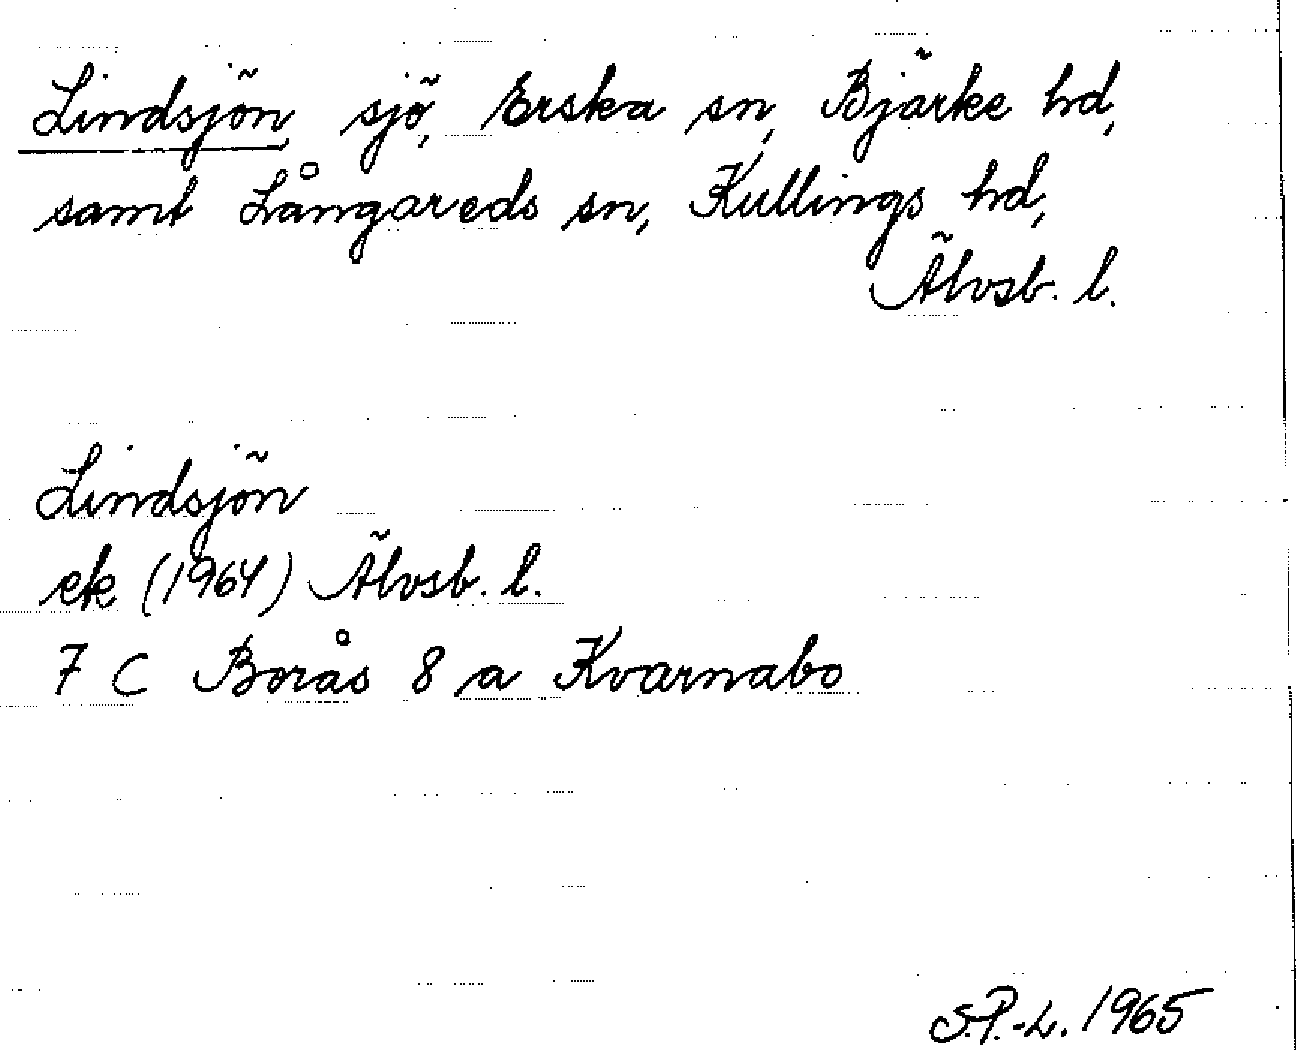 Lindsjön, sjö, Erska sn, Bjärke hd,
samt Långareds sn, Kullings hd,
Älvsb. l.
Lindsjön
ek (1964) Älvsb. l.
7 C Borås 8 a Kvarnabo
S.P.-L. 1965